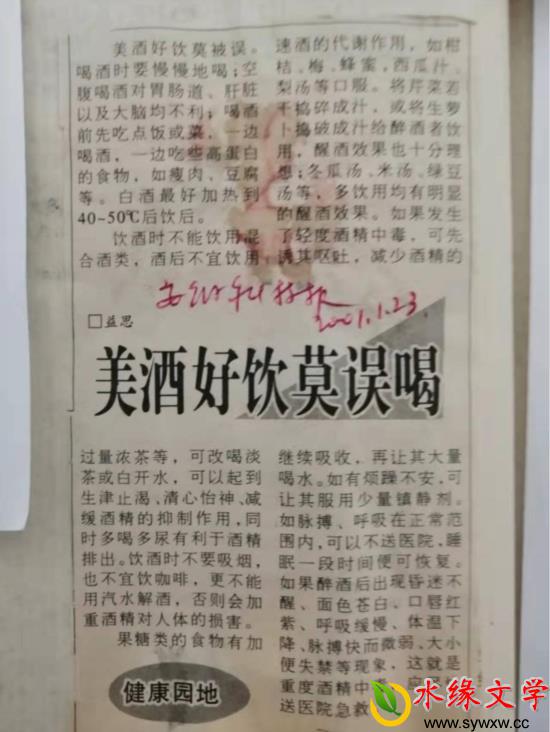 □益思
美酒好饮莫误喝
美酒好饮莫被误。
喝酒时要慢慢地喝；空
腹喝酒对胃肠道、肝脏
以及大脑均不利；喝酒
前先吃点饭或菜，一边
喝酒，一边吃些高蛋白
的食物，如瘦肉、豆腐
等。白酒最好加热到
40~50℃后饮后。
饮酒时不能饮用混
合酒类，酒后不宜饮用
过量浓茶等，可改喝淡
茶或白开水，可以起到
生津止渴、清心怡神、减
缓酒精的抑制作用，同
时多喝多尿有利于酒精
排出。饮酒时不要吸烟，
也不宜饮咖啡，更不能
用汽水解酒，否则会加
重酒精对人体的损害。
果糖类的食物有加
速酒的代谢作用，如柑
桔、梅、蜂蜜，西瓜汁、
梨汤等口服。将芹菜若
干捣碎成汁，或将生萝
卜捣破成汁给醉酒者饮
用，醒酒效果也十分理
想；冬瓜汤、米汤、绿豆
汤等，多饮用均有明显
的醒酒效果。如果发生
了轻度酒精中毒，可先
诱其呕吐，减少酒精的
继续吸收，再让其大量
喝水。如有烦躁不安，可
让其服用少量镇静剂。
如脉搏、呼吸在正常范
围内，可以不送医院，睡
眠一段时间便可恢复。
如果醉酒后出现昏迷不
醒、面色苍白、口唇红
紫、呼吸缓慢、体温下
降、脉搏快而微弱、大小
便失禁等现象，这就是
重度酒精中毒，应
送医院急救
安徽科技报
2001.1.23.
健康园地
水缘文学
www.sywxw.cc